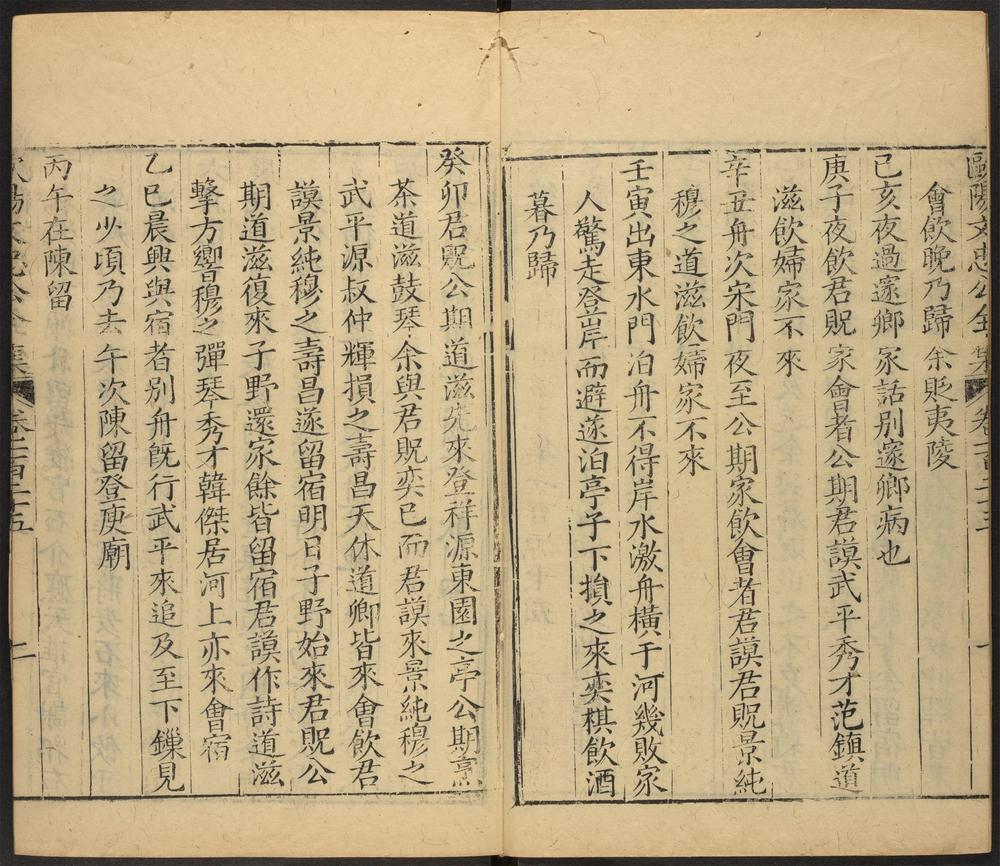 歐陽文忠公全集 卷一百二十五 一
會飲晚乃歸余貶夷陵
己亥夜過邃卿家話別邃卿病也
庚子夜飲君貺家會者公期君謨武平秀才范鎮道
滋飲婦家不來
辛丑舟次宋門夜至公期家飲會者君謨君貺景純
穆之道滋飲婦家不來
壬寅出東水門泊舟不得岸水激舟橫于河幾敗家
人驚走登岸而避遂泊亭子下損之來奕棋飲酒
暮乃歸
癸卯君貺公期道滋先來登祥源東園之亭公期烹
茶道滋鼓琴余與君貺奕已而君謨來景純穆之
武平源叔仲輝損之壽昌天休道卿皆來會飲君
謨景純穆之壽昌遂留宿明日子野始來君貺公
期道滋復來子野還家餘皆留宿君謨作詩道滋
擊方響穆之彈琴秀才韓傑居河上亦來會宿
乙巳晨興與宿者別舟旣行武平來追及至下鏁見
之少頃乃去午次陳留登庾廟
丙午在陳留
歐陽文忠公全集 卷一百二十五 二